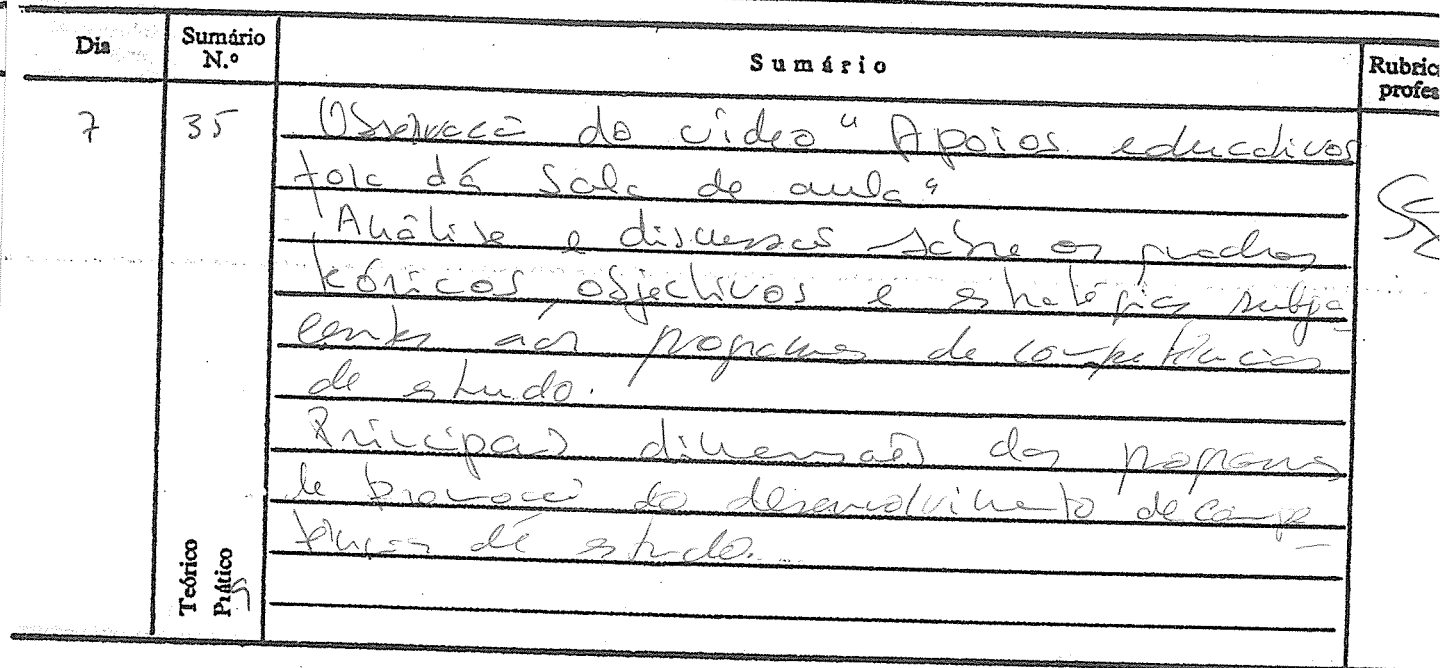 Dia
Sumário N.º
Sumário
Rubric
profes
7
35
Observação do vídeo "Apoios educativos
fora da sala de aula"
Análise e discussão sobre os quadros
teóricos, objectivos e estratégias subja-
centes aos programas de competências
de estudo.
Principais dimensões dos programas
de promoção do desenvolvimento de compe-
tências de estudo.
Teórico
Prático